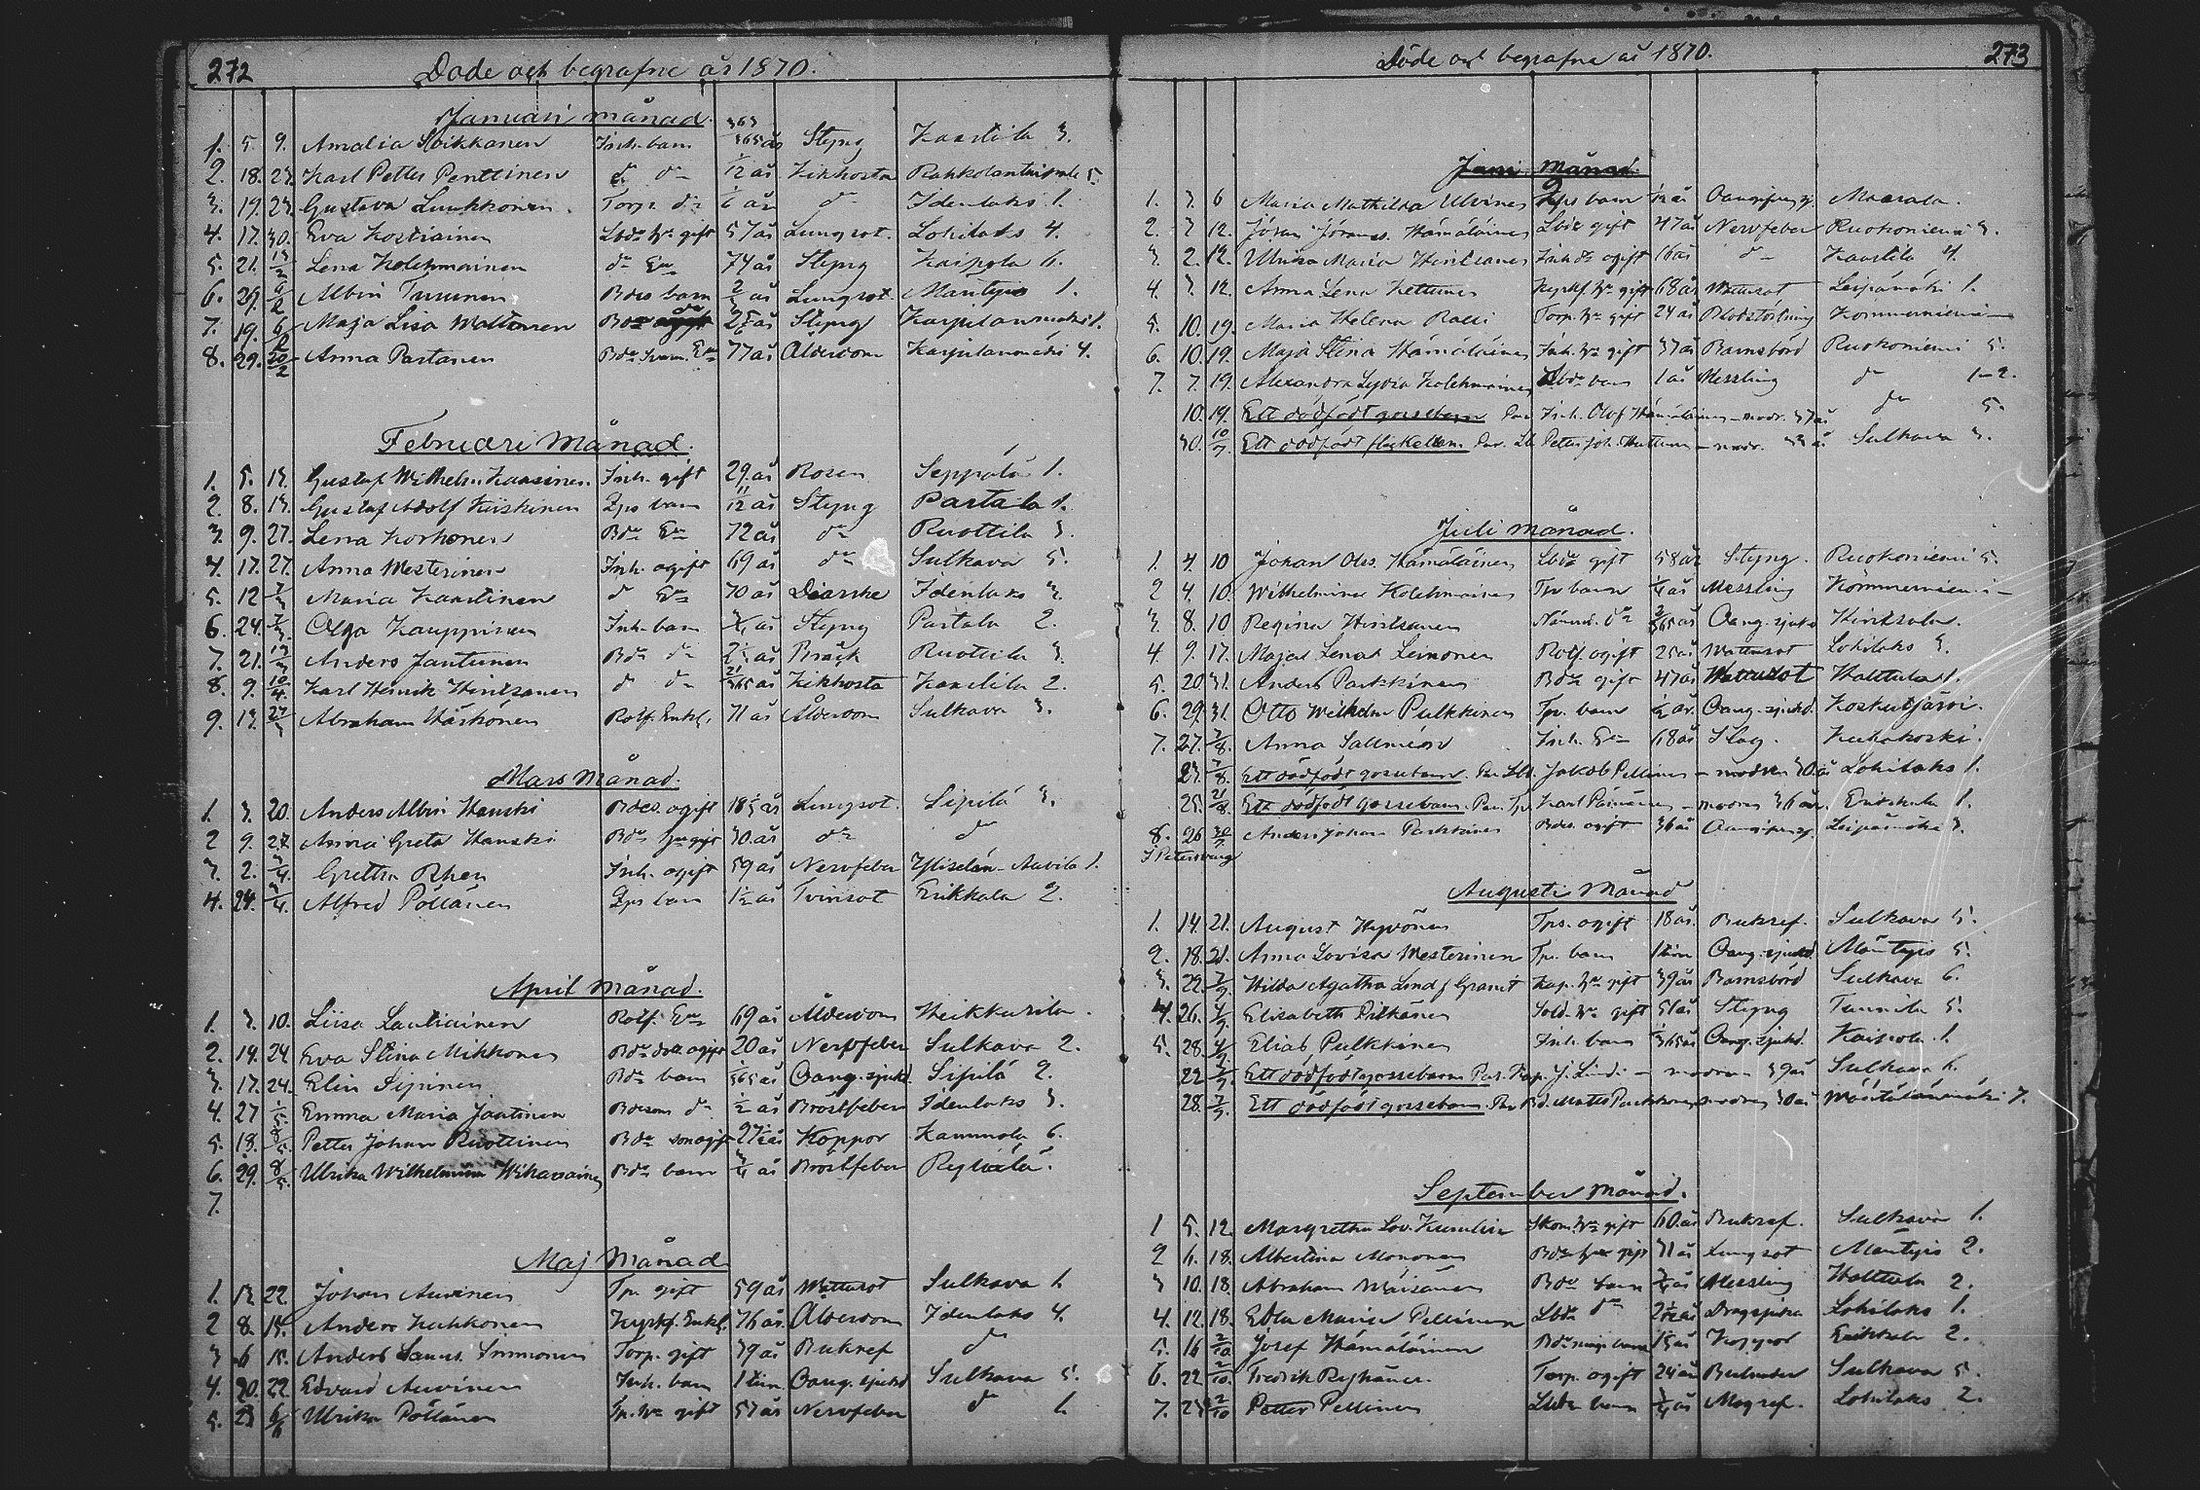 272
Döde och begrafne år 1870.
Januari månad.
1. 5. 9. Amalia Soikkanen Inh. barn 363/365 år Styng Kaartila 3.
2. 18. 23. Karl Petter Penttinen d:o d:o 1/12 år Kikhosta 5.
3. 19. 23. Gustava Luukkonen Torp. d:o 1/6 år d:o Idenlaks 1.
4. 17. 30. Eva Kostiainen Lbds h:u gift 57 år Lungsot. Lohilaks 4.
5. 21. 13/2 Lena Kolehmainen d:o E:a 74 år Styng Kaipola 6.
6. 29. 6/2 Albin Turunen Bdes barn Lungsot Mäntyis 1.
7. 19. 6/2 Maja Lisa Wattunen Bd:s Styng Karjulanmäki 1.
8. 29. 20/2 Anna Partanen Bd:s E:a 77 år Ålderdom Karjulanmäki 4.
Februari Månad.
1. 5. 13. Gustaf Wilhelm Kaasinen Inh. gift 29 år Rosen Seppälä 1.
2. 8. 13. Gustaf Adolf Kiiskinen Zps barn 11/12 år Styng Partala 1.
3. 9. 27. Lena Korhonen Bd:s E:a 72 år d:o Ruottila 3.
4. 17. 27. Anna Mesterinen Inh. ogift 69 år d:o Sulkava 5.
5. 12 Maria Kaartinen d:o E:a 70 år Diarrhe Idenlaks 3.
6. 24. Olga Kauppinen Inh. barn Styng Partala 2.
7. 21. 13/3 Anders Jantunen Bd:s d:o Bråck Ruottila 3.
8. 9. 10/4 Karl Henrik Hintsanen d:o d:o 21/365 år Kikhosta Kaartila 2.
9. 13. 27/3 Abraham Härkönen Rotf. Enkl. 71 år Ålderdom Sulkava 3.
Mars Månad.
1. 3. 20. Anders Albin Hanski Bdes. ogift Lungsot. Sipilä 3.
2 9. 27. Greta Hanski Bd:s h:u gift 30 år d:o d:o
3. 2. 3/4. Gretha Rhen Inh. ogift 59 år Nervfeber Auvila 1.
4. 24. Alfred Pöllänen Zps barn 1 1/2 år Tvinsot Erikkala 2.
April Månad.
1. 3. 10. Liisa Lautiainen Rotf. E:a 69 år Ålderdom Heikkurila.
2. 14. 24. Eva Stina Mikkonen Bd:s dott. ogift 20 år Nervfeber Sulkava 2.
3. 17. 24. Elin Sipinen Bd:s barn 1/365 år Oang. sjukd. Sipilä 2.
4. 27 1/5. Emma Maria Jantinen Bdesons d:o 1/2 år Bröstfeber Idenlaks 3.
5. 13. Petter Johan Ruottinen Bd:s son ogift Koppor Kammola 6.
6. 29. 8/5. Ulrika Wilhelmina Wihavainen Bd:s barn 3/4 år Bröstfeber
7.
Maj Månad
1. 13. 22. Johan Auvinen Tp. gift 59 år Wattusot Sulkava 6.
2 8. 15. Anders Kuhkonen Kyrkf. Enkl. 76 år Ålderdom Idenlaks 4.
3 6 15. Anders Simonen Torp. gift 39 år Bukref d:o
4. 20. 22. Edvard Auvinen Inh. barn 1 tim. Oang. sjukd Sulkava 5.
5. 23 6/6 Ulrika Pöllänen Tp. h:u gift 57 år Nervfeber d:o 6.
273
Döde och begrafne år 1870.
Juni Månad.
1. 3. 6 Maria Mathilda Ulvinen Zps barn 1/12 år Oangifven sj. Maarala.
2. 3 12. Jöran Jöranss. Hämäläinen Lbde gift 47 år Nervfeber Ruokoniemi 3.
3. 2. 12. Ulrika Maria Hintsanen Inh. d:r ogift 16 år d:o Kaartila 4.
4. 7. 12. Anna Lena Kettunen Kyrkf. h:u gift 68 år Wattusot Leipämäki 1.
5. 10. 19. Maria Helena Ralli Torp. h:u gift 24 år Blodstörtning Kommerniemi —
6. 10. 19. Maja Stina Hämäläinen Inh. h:u gift 37 år Barnsbörd Ruokoniemi 5.
7. 7. 19. Alexandra Lydia Kolehmainen Lbde barn 1 år Messling d:o 1–2.
10. 19. Ett dödfödt gossebarn Par. Inh. Olof Hämäläinen — modr. 37 år d:o 5.
30. 10/7. Ett dödfödt flickebarn. Par. Lb. Petter Joh. Huttunen — modr. 33 år Sulkava 3.
Juli Månad.
1. 4. 10 Johan Olss. Hämäläinen Lbde gift 58 år Styng. Ruokoniemi 5.
2 4. 10. Wilhelmina Kolehmainen Tp. barn Messling Kommerniemi —
3. 8. 10 Regina Hintsanen Nämnd. d:o Oang. sjukd Hintsala.
4. 9. 17. Maja Lena Leinonen Rotf. ogift 25 år Wattusot Lohilaks 3.
5. 20. 31. Anders Parkkinen Bd:s gift 47 år Wattusot Halttula 1.
6. 29. 31. Otto Wilhelm Pulkkinen Tp. barn 1/2 år. Oang. sjukd. Koskutjärvi.
7. 27. 7/8. Anna Sallinen Inh. E:a 68 år Slag. Kuhakoski.
23. 7/8. Ett dödfödt gossebarn. Par. Lbd. Jakob Pellinen — modren 30 år Lohilaks 1.
25. 21/8. Ett dödfödt gossebarn. Par. Tp. Karl — modren 36 år. Erikkala 1.
8. 26 30/7. Anders Johan Parkkinen Bdes. ogift 36 år Oangifven sj. Leipämäki 3.
I Petersburg
Augusti Månad
1. 14. 21. August Hyvönen Tps. ogift 18 år Bukref. Sulkava 5.
2. 18. 21. Anna Lovisa Mesterinen Tp. barn 1 tim Oang. sjukd. Mäntyis 5.
3. 22. Hilda Agatha Lind f. Granit Kap. h:u gift 39 år Barnsbörd Sulkava 6.
4. 26. 4/9 Elisabeth Pitkänen Sold. h:u gift 51 år Styng Tunnila 5.
5. 28. 4/9 Elias Pulkkinen Inh. barn Oang. sjukd. Kaipola 1.
22 Ett dödfödt gossebarn Par. Kap. J. Lind — modren 39 år Sulkava 6.
28. Ett dödfödt gossebarn. Par. Bd. Matts Parkkonen modren 30 år 7.
September Månad.
1 5. 12. Margretha Lov. Skom. h:u gift 60 år Bukref. Sulkava 1.
2 6. 18. Albertina Mononen Bd:s h:u gift 31 år Lungsot Mäntyis 2.
3 10. 18. Abraham Väisänen Bd:s barn Messling Halttula 2.
4. 12. 18. Edla Maria Pellinen Lbds d:o Dragsjuka Lohilaks 1.
5. 16 2/10 Josef Hämäläinen Koppor Erikkala 2.
6. 22 2/10. Fredrik Reijonen Torp. ogift 24 år Sulkava 5.
7. 23 2/10 Petter Pellinen Lbde barn 3/4 år Magref. Lohilaks 2.